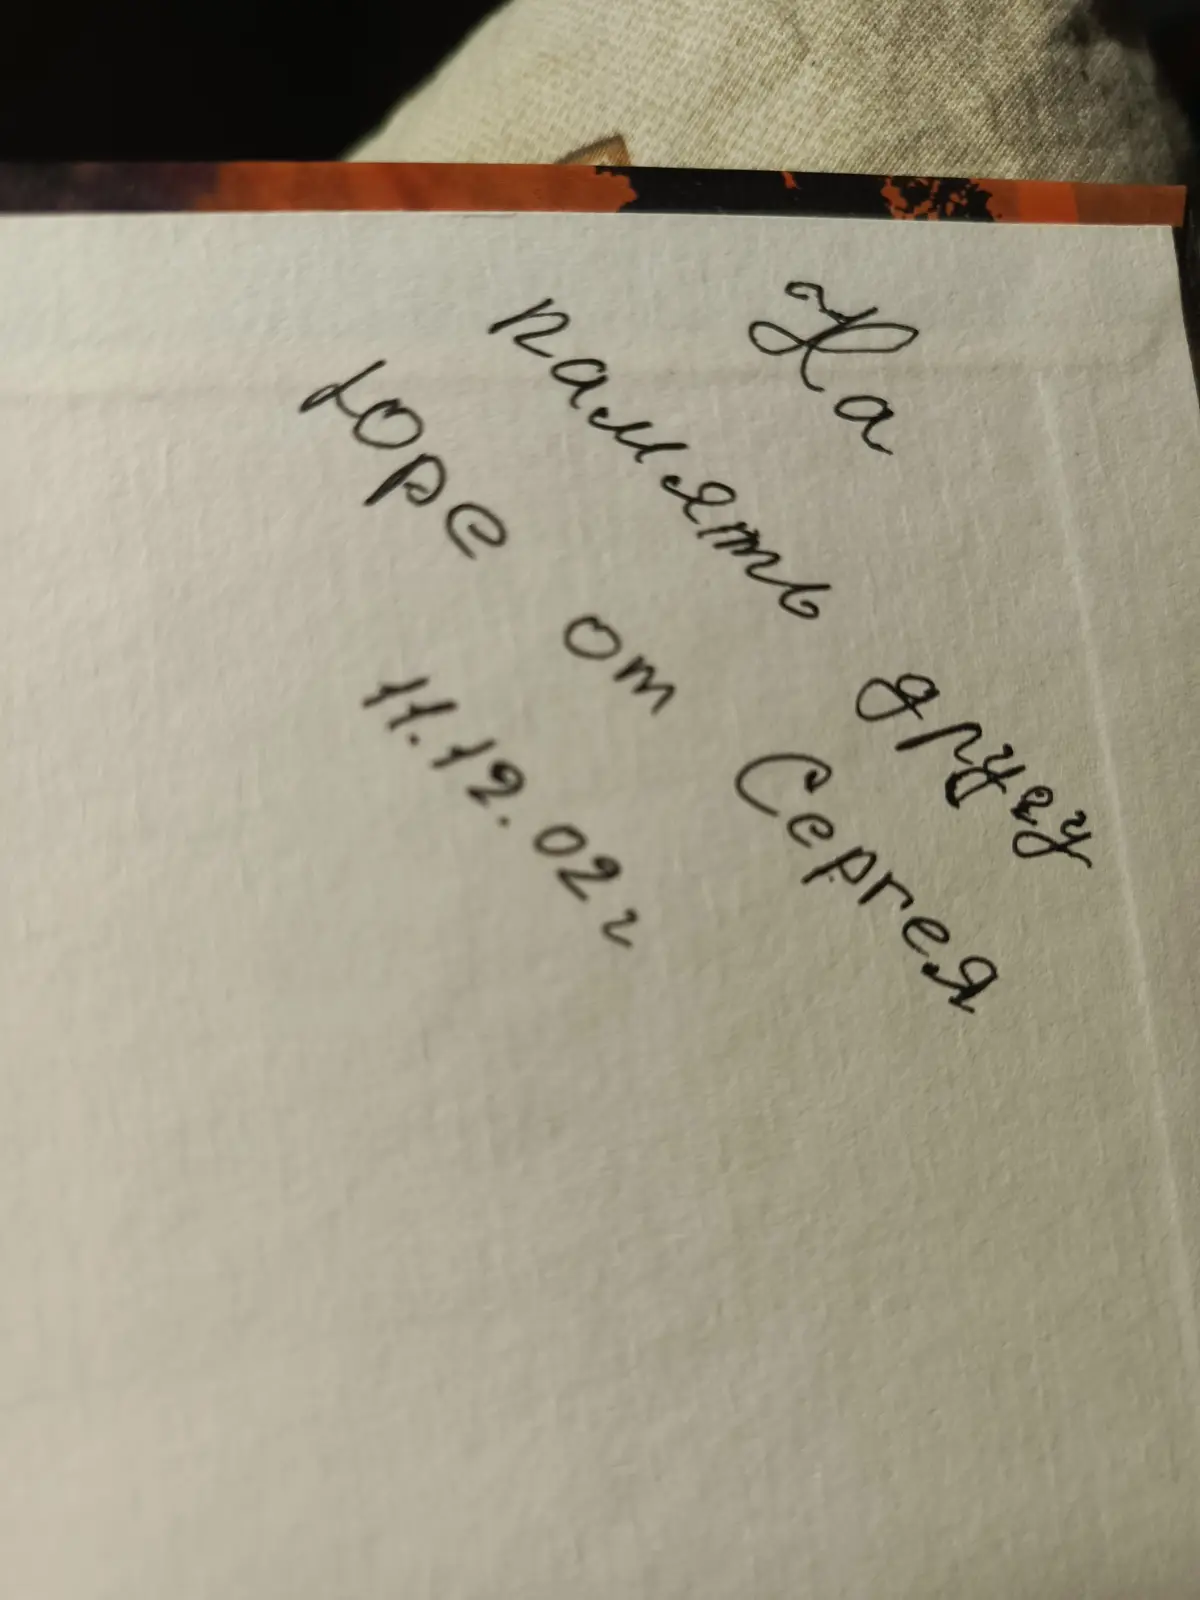 На
память другу
Юре от Сергея
11.12.02г